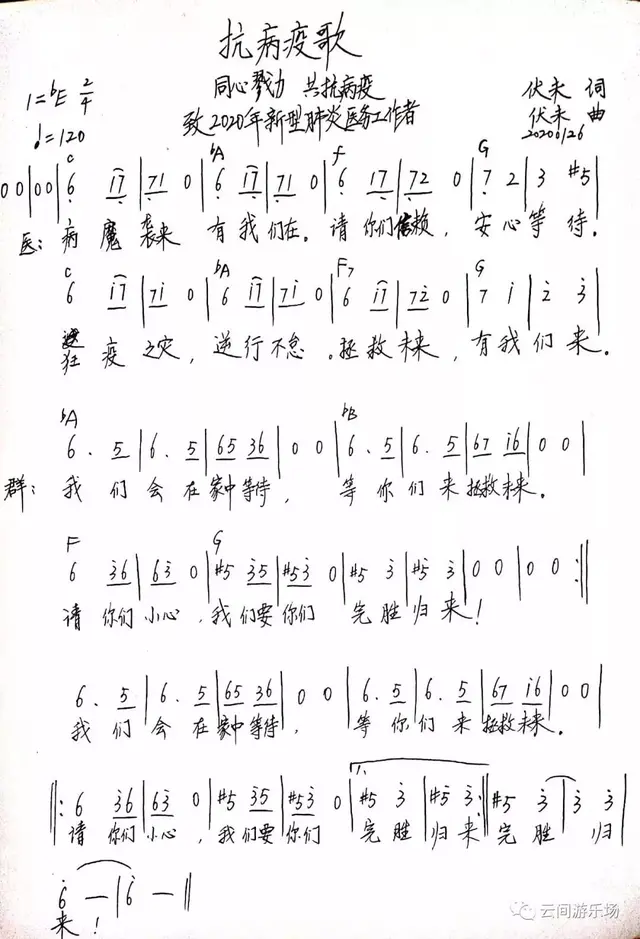 抗病疫歌
同心戮力 共抗病疫
致2020年新型肺炎医务工作者
1=bE 2/4
♩=120
伏未 词
伏未 曲
20200126
C bA F G
00|00|6 17|71 0|6 17|71 0|6 17|72 0|7 2|3 #5|
医：病魔袭来 有我们在。请你们信赖，安心等待。
C bA F7 G
6 17|71 0|6 17|71 0|6 17|72 0|7 1|2 3|
狂疫之灾，逆行不怠。拯救未来，有我们来。
bA bB
6. 5|6. 5|65 36|0 0|6. 5|6. 5|67 16|0 0|
群：我们会在家中等待，等你们来拯救未来。
F G
6 36|63 0|#5 35|#53 0|#5 3|#5 3|0 0|0 0:||
请你们小心，我们要你们 完胜归来！
6. 5|6. 5|65 36|0 0|6. 5|6. 5|67 16|0 0|
我们会在家中等待，等你们来拯救未来。
1.
||:6 36|63 0|#5 35|#53 0|#5 3|#5 3:||#5 3|3 3|
请你们小心，我们要你们 完胜归来 完胜 归
6 —|6 —||
来！
云间游乐场